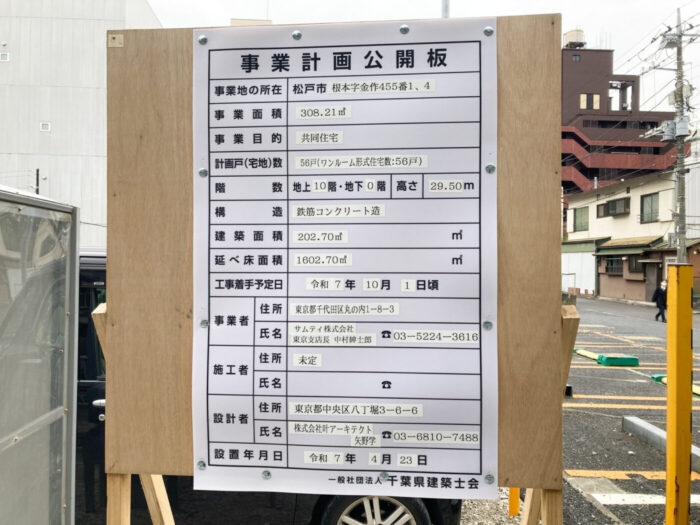 事業計画公開板
事業地の所在 松戸市 根本字金作455番1、4
事業面積 308.21㎡
事業目的 共同住宅
計画戸(宅地)数 56戸(ワンルーム形式住宅数:56戸)
階数 地上10階・地下0階 高さ 29.50m
構造 鉄筋コンクリート造
建築面積 202.70㎡ ㎡
延べ床面積 1602.70㎡ ㎡
工事着手予定日 令和 7年 10月 1日頃
事業者 住所 東京都千代田区丸の内1-8-3
氏名 サムティ株式会社
東京支店長 中村紳士郎 ☎03-5224-3616
施工者 住所 未定
氏名 ☎
設計者 住所 東京都中央区八丁堀3-6-6
氏名 株式会社叶アーキテクト
矢野学 ☎03-6810-7488
設置年月日 令和 7年 4月 23日
一般社団法人 千葉県建築士会